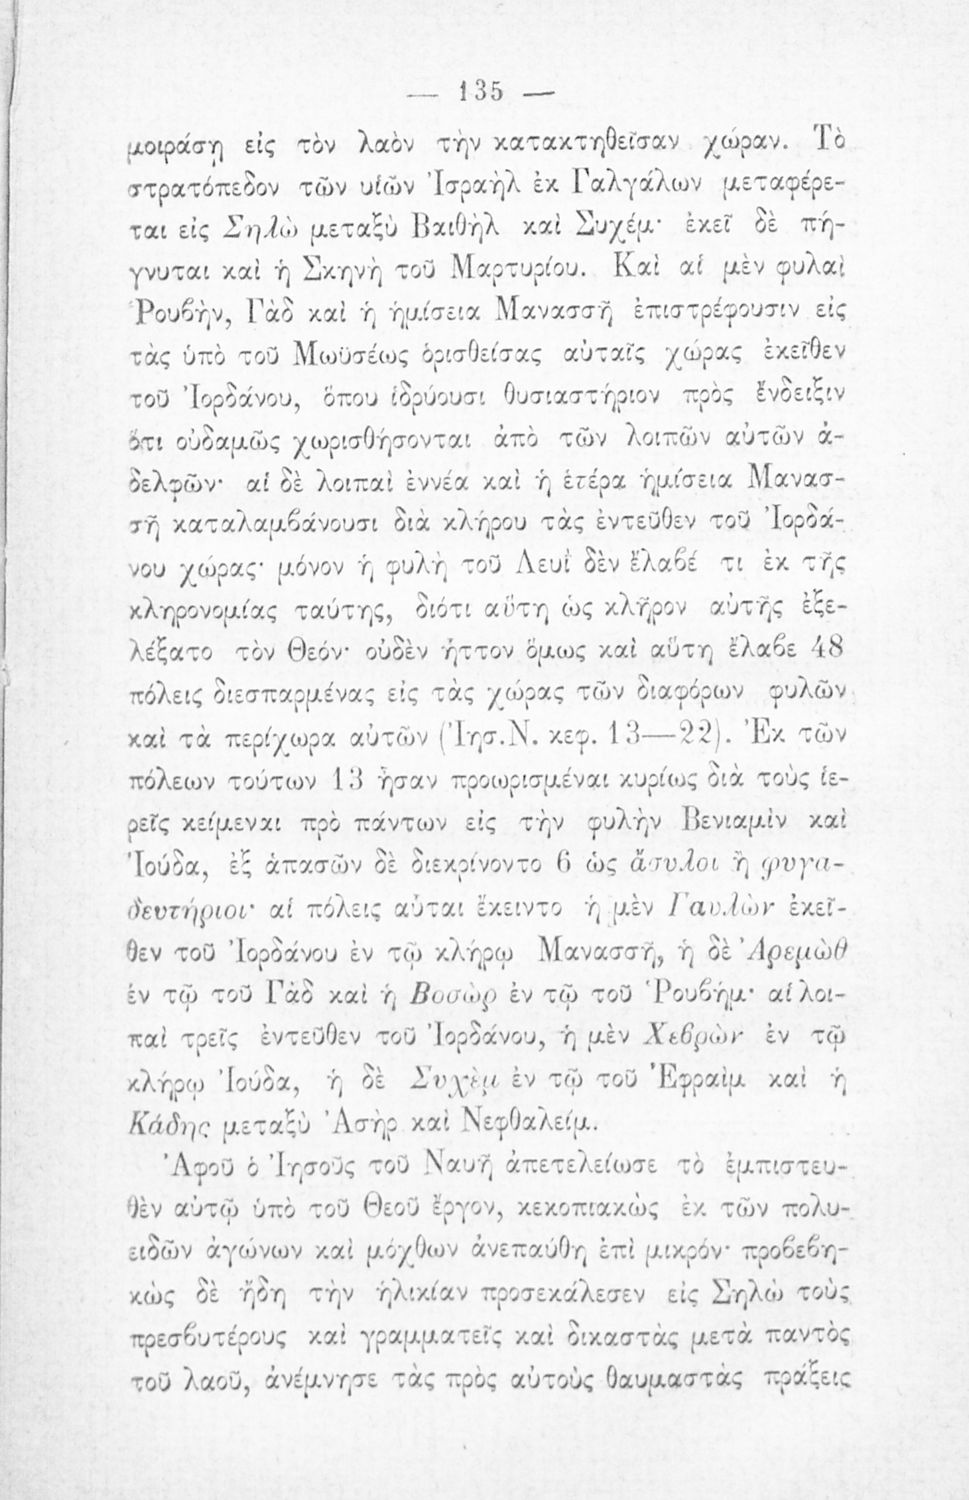 — 135 —
μοιράσῃ εἰς τὸν λαὸν τὴν κατακτηθεῖσαν χώραν. Τὸ
στρατόπεδον τῶν υἱῶν Ἰσραὴλ ἐκ Γαλγάλων μεταφέρε-
ται εἰς Σηλὼ μεταξὺ Βαιθὴλ καὶ Συχέμ· ἐκεῖ δὲ πή-
γνυται καὶ ἡ Σκηνὴ τοῦ Μαρτυρίου. Καὶ αἱ μὲν φυλαὶ
Ῥουβὴν, Γὰδ καὶ ἡ ἡμίσεια Μανασσῆ ἐπιστρέφουσιν εἰς
τὰς ὑπὸ τοῦ Μωϋσέως ὁρισθείσας αὐταῖς χώρας ἐκεῖθεν
τοῦ Ἰορδάνου, ὅπου ἱδρύουσι θυσιαστήριον πρὸς ἔνδειξιν
ὅτι οὐδαμῶς χωρισθήσονται ἀπὸ τῶν λοιπῶν αὐτῶν ἀ-
δελφῶν· αἱ δὲ λοιπαὶ ἐννέα καὶ ἡ ἑτέρα ἡμίσεια Μανασ-
σῆ καταλαμβάνουσι διὰ κλήρου τὰς ἐντεῦθεν τοῦ Ἰορδά-
νου χώρας· μόνον ἡ φυλὴ τοῦ Λευῒ δὲν ἔλαβέ τι ἐκ τῆς
κληρονομίας ταύτης, διότι αὕτη ὡς κλῆρον αὐτῆς ἐξε-
λέξατο τὸν Θεόν· οὐδὲν ἧττον ὅμως καὶ αὕτη ἔλαβε 48
πόλεις διεσπαρμένας εἰς τὰς χώρας τῶν διαφόρων φυλῶν
καὶ τὰ περίχωρα αὐτῶν (Ἰησ.Ν. κεφ. 13—22). Ἐκ τῶν
πόλεων τούτων 13 ἦσαν προωρισμέναι κυρίως διὰ τοὺς ἱε-
ρεῖς κείμεναι πρὸ πάντων εἰς τὴν φυλὴν Βενιαμὶν καὶ
Ἰούδα, ἐξ ἁπασῶν δὲ διεκρίνοντο 6 ὡς ἄσυλοι ἢ φυγα-
δευτήριοι· αἱ πόλεις αὗται ἔκειντο ἡ μὲν Γαυλὼν ἐκεῖ-
θεν τοῦ Ἰορδάνου ἐν τῷ κλήρῳ Μανασσῆ, ἡ δὲ Ἀρεμὼθ
ἐν τῷ τοῦ Γὰδ καὶ ἡ Βοσὼρ ἐν τῷ τοῦ Ῥουβήμ· αἱ λοι-
παὶ τρεῖς ἐντεῦθεν τοῦ Ἰορδάνου, ἡ μὲν Χεβρὼν ἐν τῷ
κλήρῳ Ἰούδα, ἡ δὲ Συχὲμ ἐν τῷ τοῦ Ἐφραὶμ καὶ ἡ
Κάδης μεταξὺ Ἀσὴρ καὶ Νεφθαλείμ.
Ἀφοῦ ὁ Ἰησοῦς τοῦ Ναυῆ ἀπετελείωσε τὸ ἐμπιστευ-
θὲν αὐτῷ ὑπὸ τοῦ Θεοῦ ἔργον, κεκοπιακὼς ἐκ τῶν πολυ-
ειδῶν ἀγώνων καὶ μόχθων ἀνεπαύθη ἐπὶ μικρόν· προβεβη-
κὼς δὲ ἤδη τὴν ἡλικίαν προσεκάλεσεν εἰς Σηλὼ τοὺς
πρεσβυτέρους καὶ γραμματεῖς καὶ δικαστὰς μετὰ παντὸς
τοῦ λαοῦ, ἀνέμνησε τὰς πρὸς αὐτοὺς θαυμαστὰς πράξεις